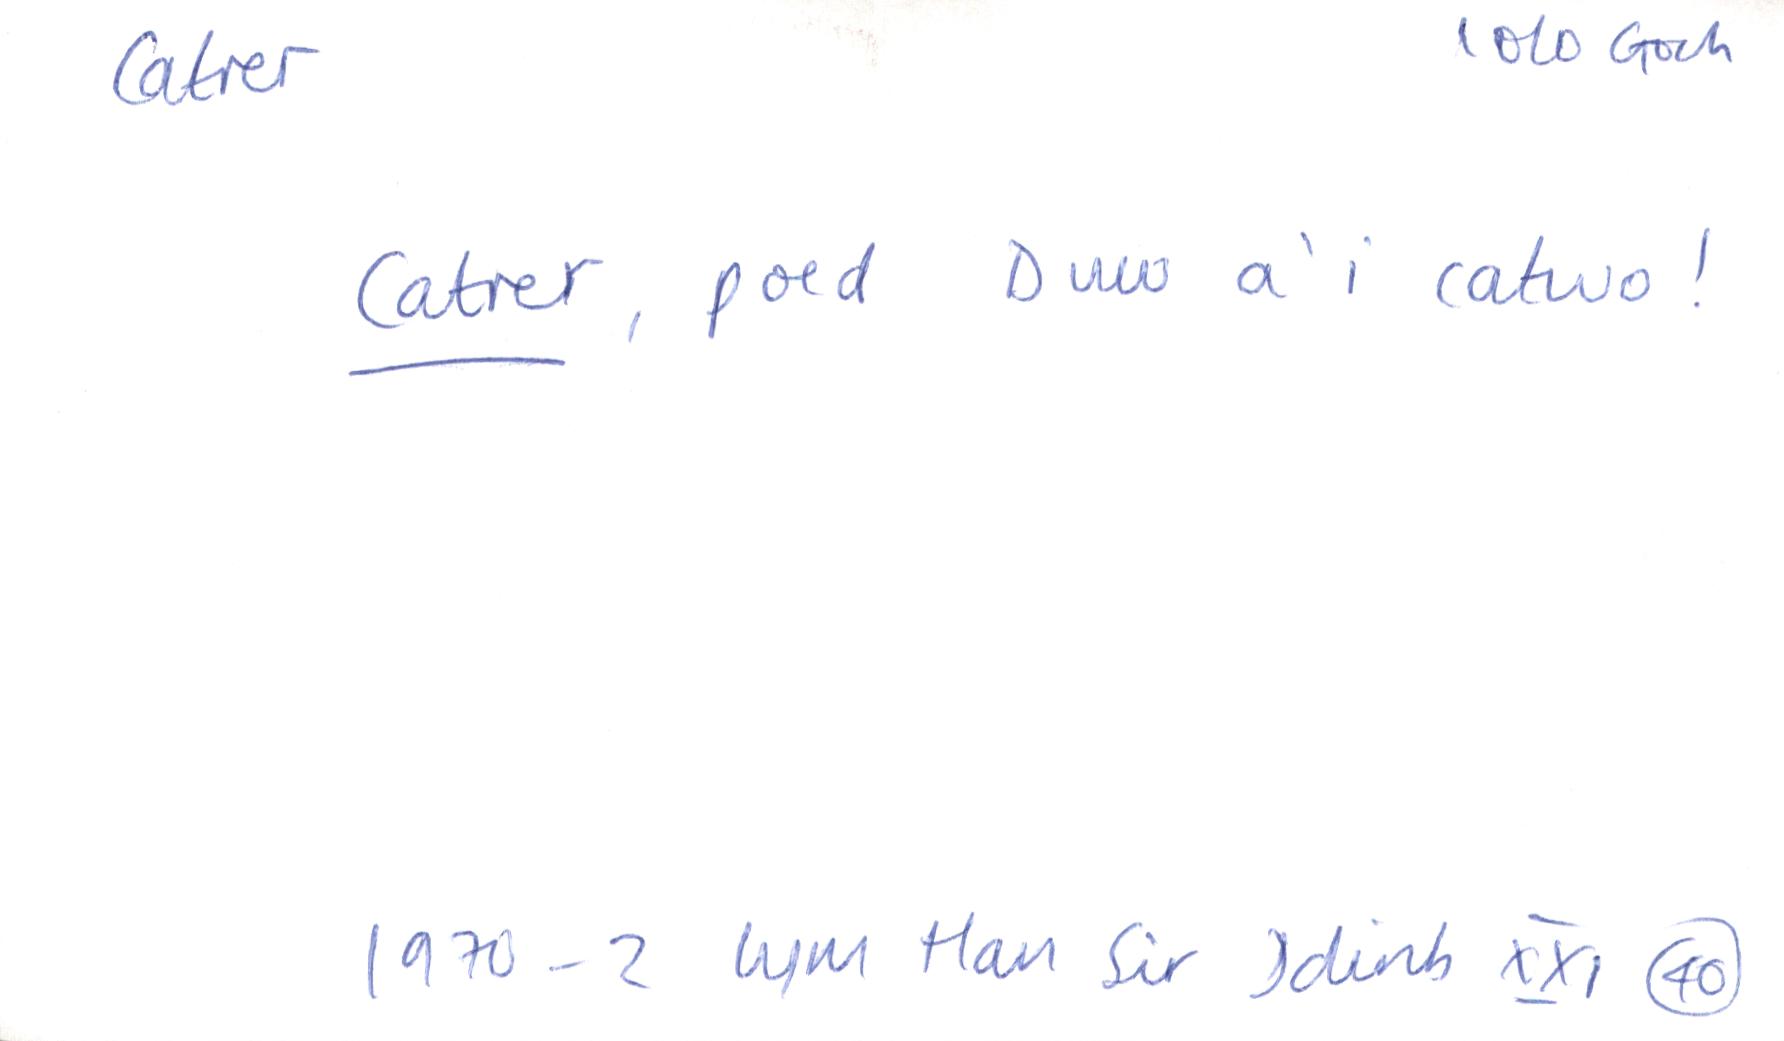 Catrer
Iolo Goch
Catrer, poed Duw a'i catwo!
1970-2 Cym Han Sir Ddinb XXI 40